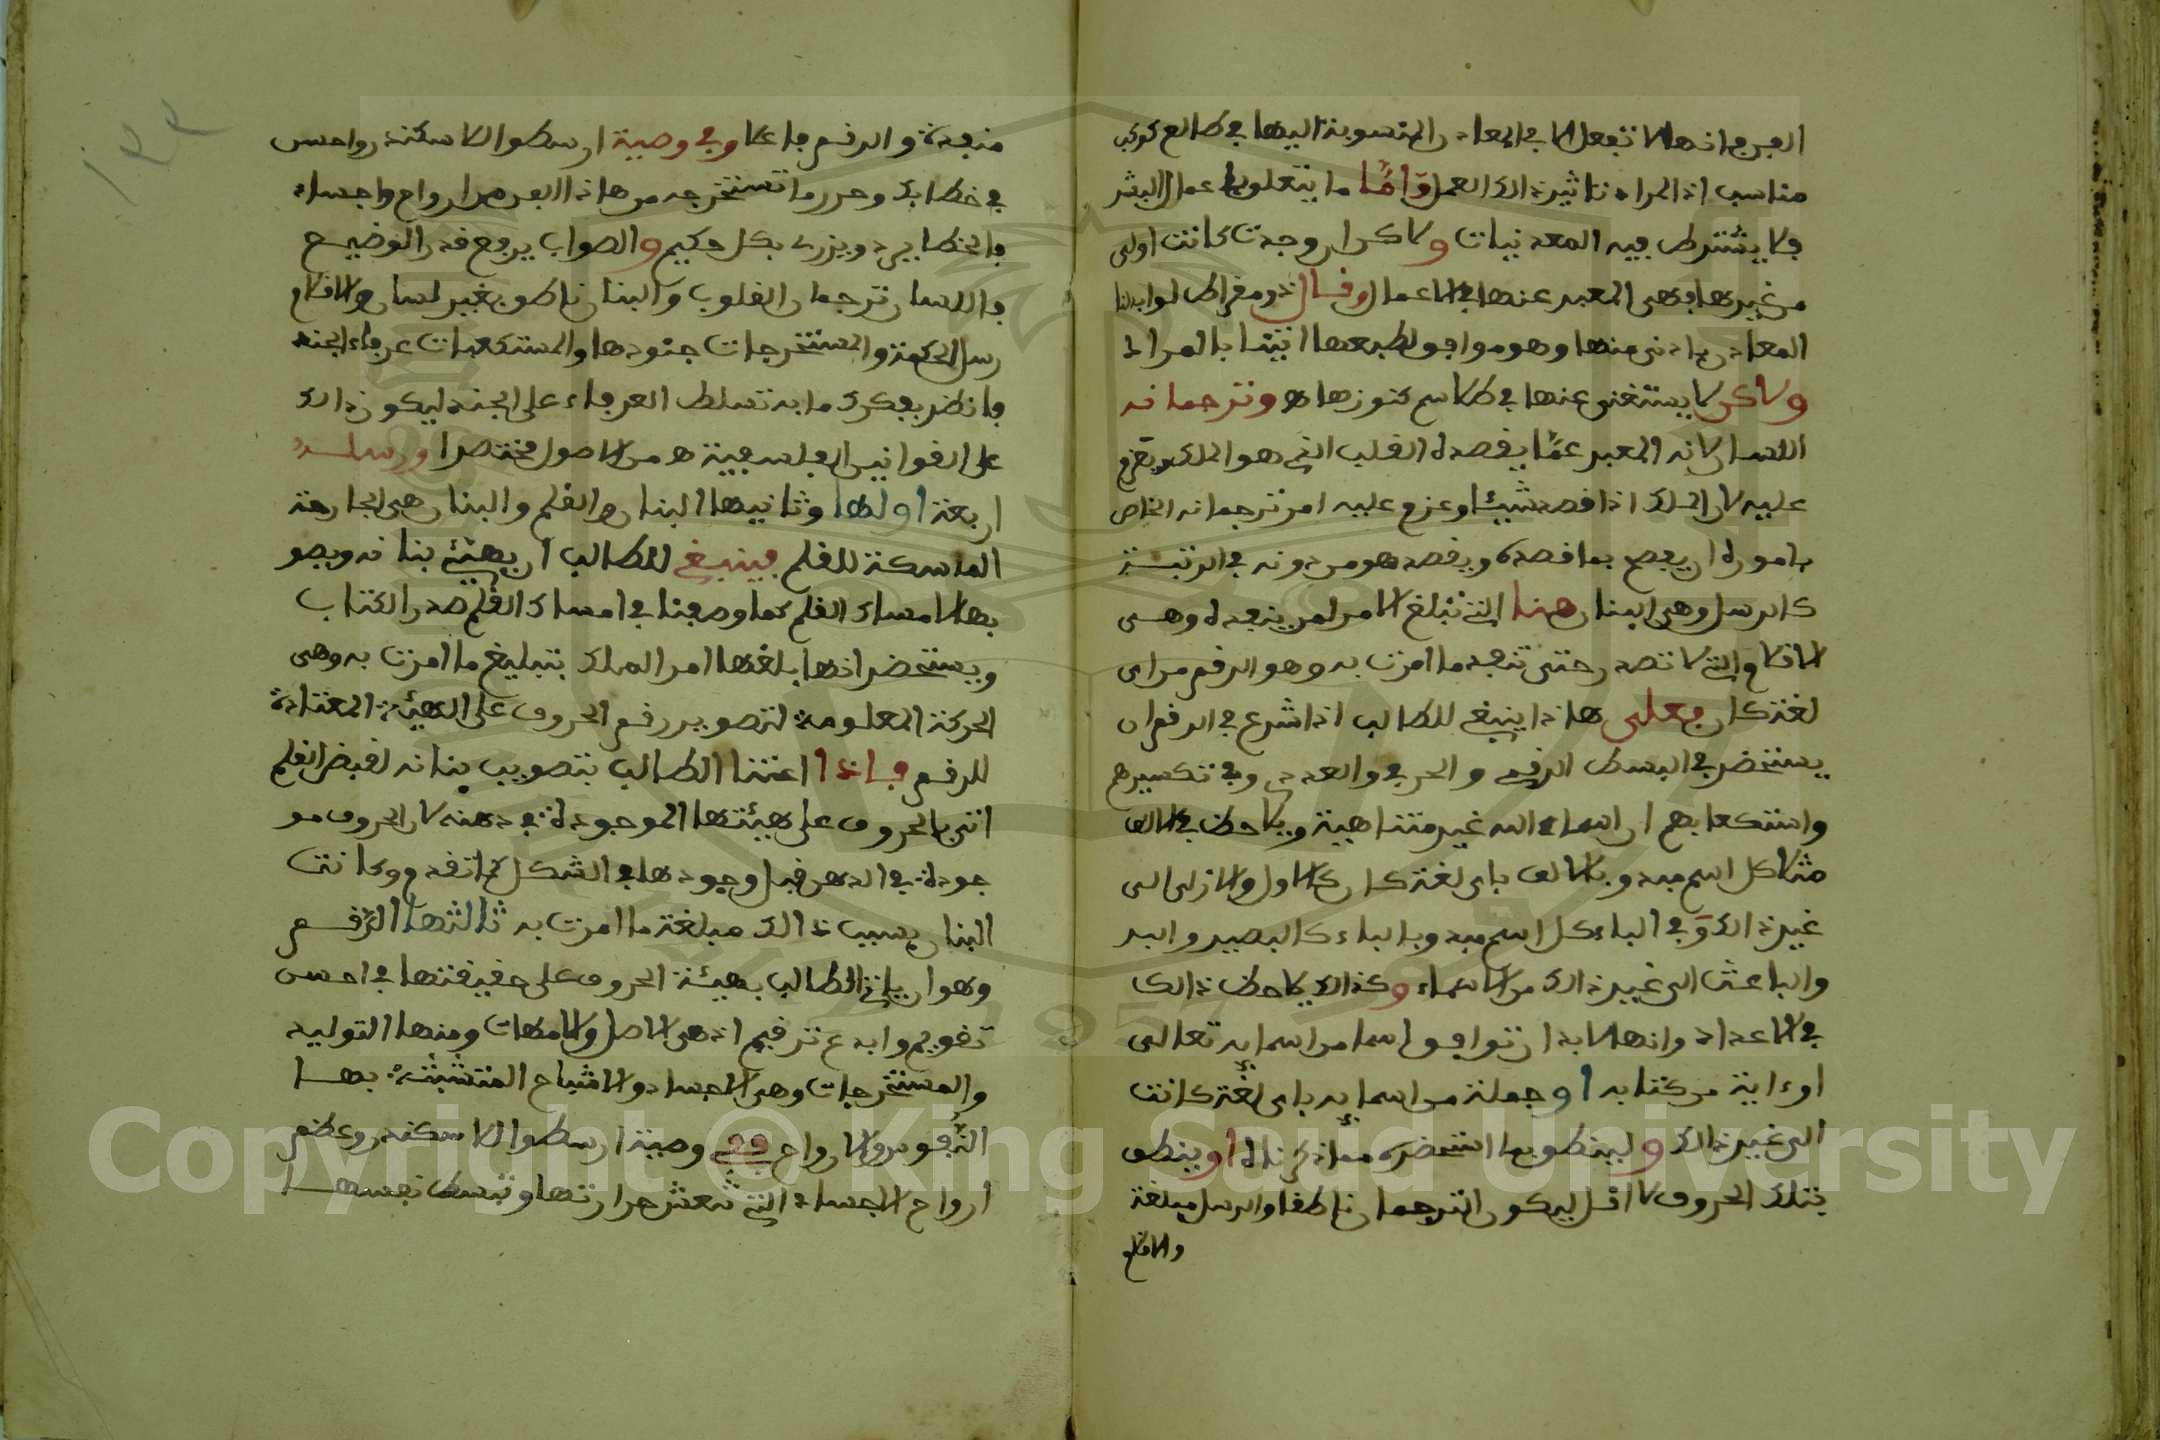 العرم انها لا تفعل الا في المعادن المنسوبة اليها في طالع كوكب
مناسب اذ المراد تاثير ذالك العمل وأمّا ما يتعلق باعمال البشر
فلا يشترط فيه المعدنيات ولاكن ان وجدت كانت اولى
من غيرها وهي المعبر عنها في الاعمال وقال ذومقراط لو ابدلنا
المعادن بادنى منها وهو موافق لطبعها اتينا بالمراد
ولاكن لا يستغنى عنها في طلاسم كنوزها وترجمانه
اللسان لانه المعبر عمّا يقصده القلب الذي هو الملك
عليه لان الملك اذا قصد شيئا وعزم عليه امر ترجمانه الخاص
باموره ان يفصح بما قصده ويقصد هو من دونه في الرتبة
كالرسل وهي البنان هنا التي تبلغ الامر لمن ينفذه وهي
الاقلام والتي لا تتصدر حتى تنفذ ما امرت به وهو الرقم من اي
لغة كان فعلى هاذا ينبغي للطالب اذا شرع في الرقم ان
يستحضر في البسط الرقمي والحرفي والعددي وفي تكسيرهم
واستنطاقهم ان اسماء الله غير متناهية ويلاحظ في الالف
مثلا كل اسم مبدو بالالف باي لغة كان كالاول والازلي الى
غير ذالك وفي الباء كل اسم مبدو بالباء كالبصير والبر
والباعث الى غير ذالك من الاسماء وكذالك يلاحظ ذالك
في الاعداد وانها لا بد ان توافق اسما من اسمايه تعالى
او ءاية من كتابه او جملة من اسمايه باي لغة كانت
الى غير ذالك ولينطق بما استحضره مما ذكرناه او ينطق
بتلك الحروف لا اقل ليكون الترجمان ناطقا والرسل مبلغة
والاقلام
منفذة والرقم فاعلا وفي وصية ارسطوا للاسكندر واحسن
في خطابك وحرر ما تستخرجه من هاذا الفن من ارواح واجساد
فالخطا يردي ويزري بكل حكيم والصواب يرفع قدر الوضيع
فاللسان ترجمان القلوب والبنان ناطق بغير لسان والاقلام
رسل الحكمة والمستخرجات جنودها والمستنطقات عرفاء الجند
فانظر بفكرك ما به تسلط العرفاء على الجند ليكون ذالك
على القوانين الفلسفية من الاصول مختصرا ورسله
اربعة اولها وثانيها البنان والقلم والبنان هي الجارحة
الماسكة للقلم فينبغي للطالب ان يهيئ بنانه ويصو
بها لامساك القلم كما وصفنا في امساك القلم صدر الكتاب
ويستحضر انها بلغها امر الملك بتبليغ ما امرت به وهي
الحركة المعلومة لتصوير رقم الحروف على الهيئة المعتادة
للرقم فاذا اعتنا الطالب بتصويب بنانه لقبض القلم
اتى بالحروف على هيئتها الموجودة في ذهنه لان الحروف مو
جودة في الذهن قبل وجودها في الشكل كما تقدم وكانت
البنان بسبب ذالك مبلغة ما امرت به ثالثها الرقم
وهو ان ياتي الطالب بهيئة الحروف على حقيقتها في احسن
تقويم وابدع ترقيم اذ هي الاصل والامهات ومنها التوليد
والمستخرجات وهي الاجساد والاشباح المتشبثة بها
النفوس والارواح ففي وصية ارسطوا للاسكندر وعظم
ارواح الاجساد التي تنعش حرارتها وتبسط نفسها